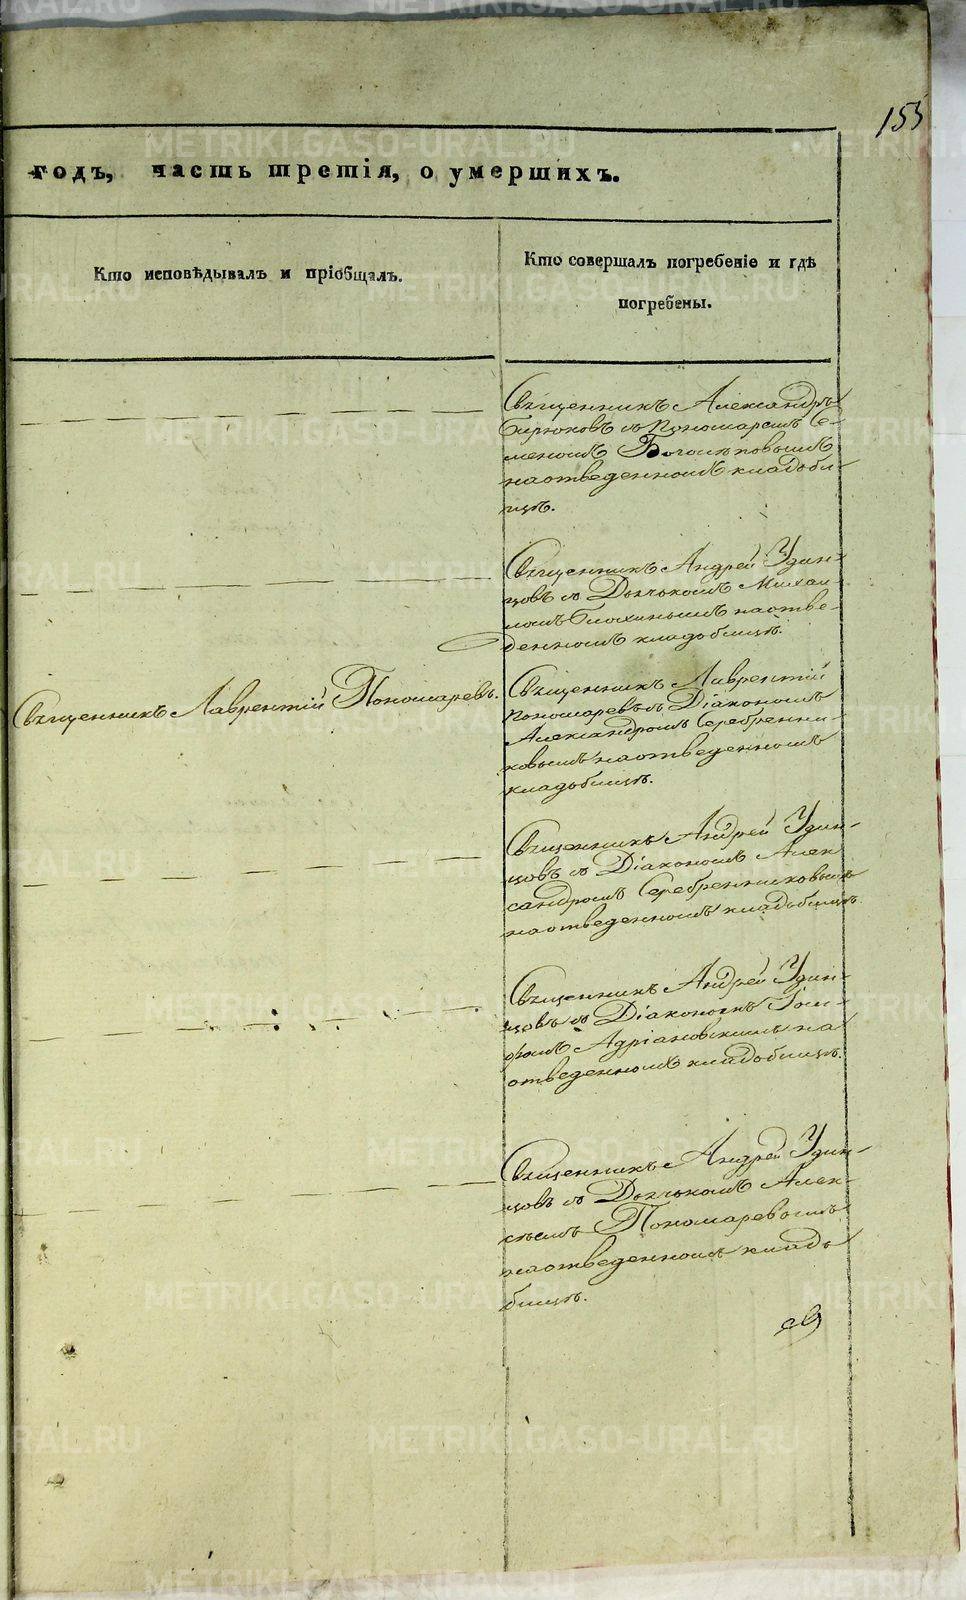 155
годъ, часть третія, о умершихъ.
Кто исповѣдывалъ и пріобщалъ.
Кто совершалъ погребеніе и гдѣ
погребены.
Священникъ Александръ
Бирюковъ съ Пономаремъ Се-
меномъ Боголѣповымъ
на отведенномъ кладоби-
щѣ.
Священникъ Андрей Удин-
цовъ съ Дьячькомъ Михаи-
ломъ Блохинымъ на отве-
денномъ кладобищѣ.
Священникъ Лаврентій Пономаревъ.
Священникъ Лаврентій
Пономаревъ съ Діакономъ
Александромъ Серебренни-
ковымъ на отведенномъ
кладобищѣ.
Священникъ Андрей Удин-
цовъ съ Діакономъ Алек
сандромъ Серебренниковымъ
на отведенномъ кладобищѣ.
Священникъ Андрей Удин-
цовъ съ Діакономъ
Адріановскимъ на
отведенномъ кладобищѣ.
Священникъ Андрей Удин-
цовъ съ Дьячькомъ Алек-
сѣемъ Пономаревымъ
на отведенномъ кладо
бищѣ.
METRIKI.GASO-URAL.RU